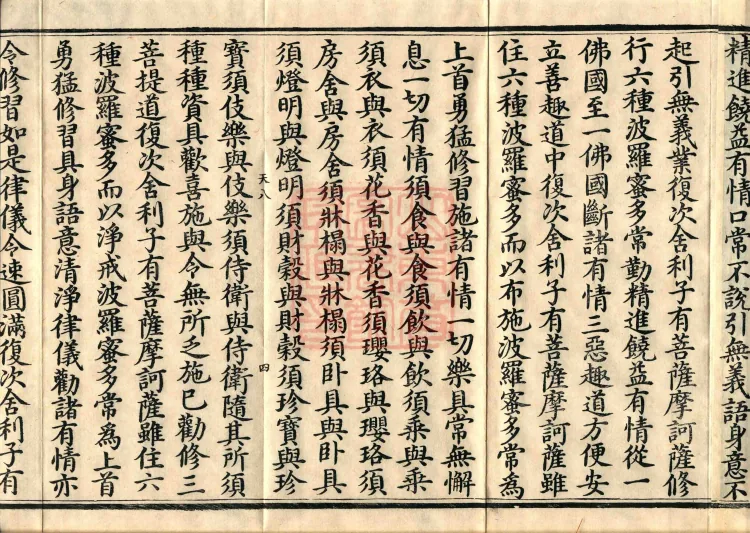 精進饒益有情口常不說引無義語身意不
起引無義業復次舍利子有菩薩摩訶薩修
行六種波羅蜜多常勤精進饒益有情從一
佛國至一佛國斷諸有情三惡趣道方便安
立善趣道中復次舍利子有菩薩摩訶薩雖
住六種波羅蜜多而以布施波羅蜜多常為
上首勇猛修習施諸有情一切樂具常無懈
息一切有情須食與食須飲與飲須乘與乘
須衣與衣須花香與花香須瓔珞與瓔珞須
房舍與房舍須牀榻與牀榻須臥具與臥具
須燈明與燈明須財穀與財穀須珍寶與珍
天八 四
寶須伎樂與伎樂須侍衛與侍衛隨其所須
種種資具歡喜施與令無所乏施已勸修三
菩提道復次舍利子有菩薩摩訶薩雖住六
種波羅蜜多而以淨戒波羅蜜多常為上首
勇猛修習具身語意清淨律儀勸諸有情亦
令修習如是律儀令速圓滿復次舍利子有